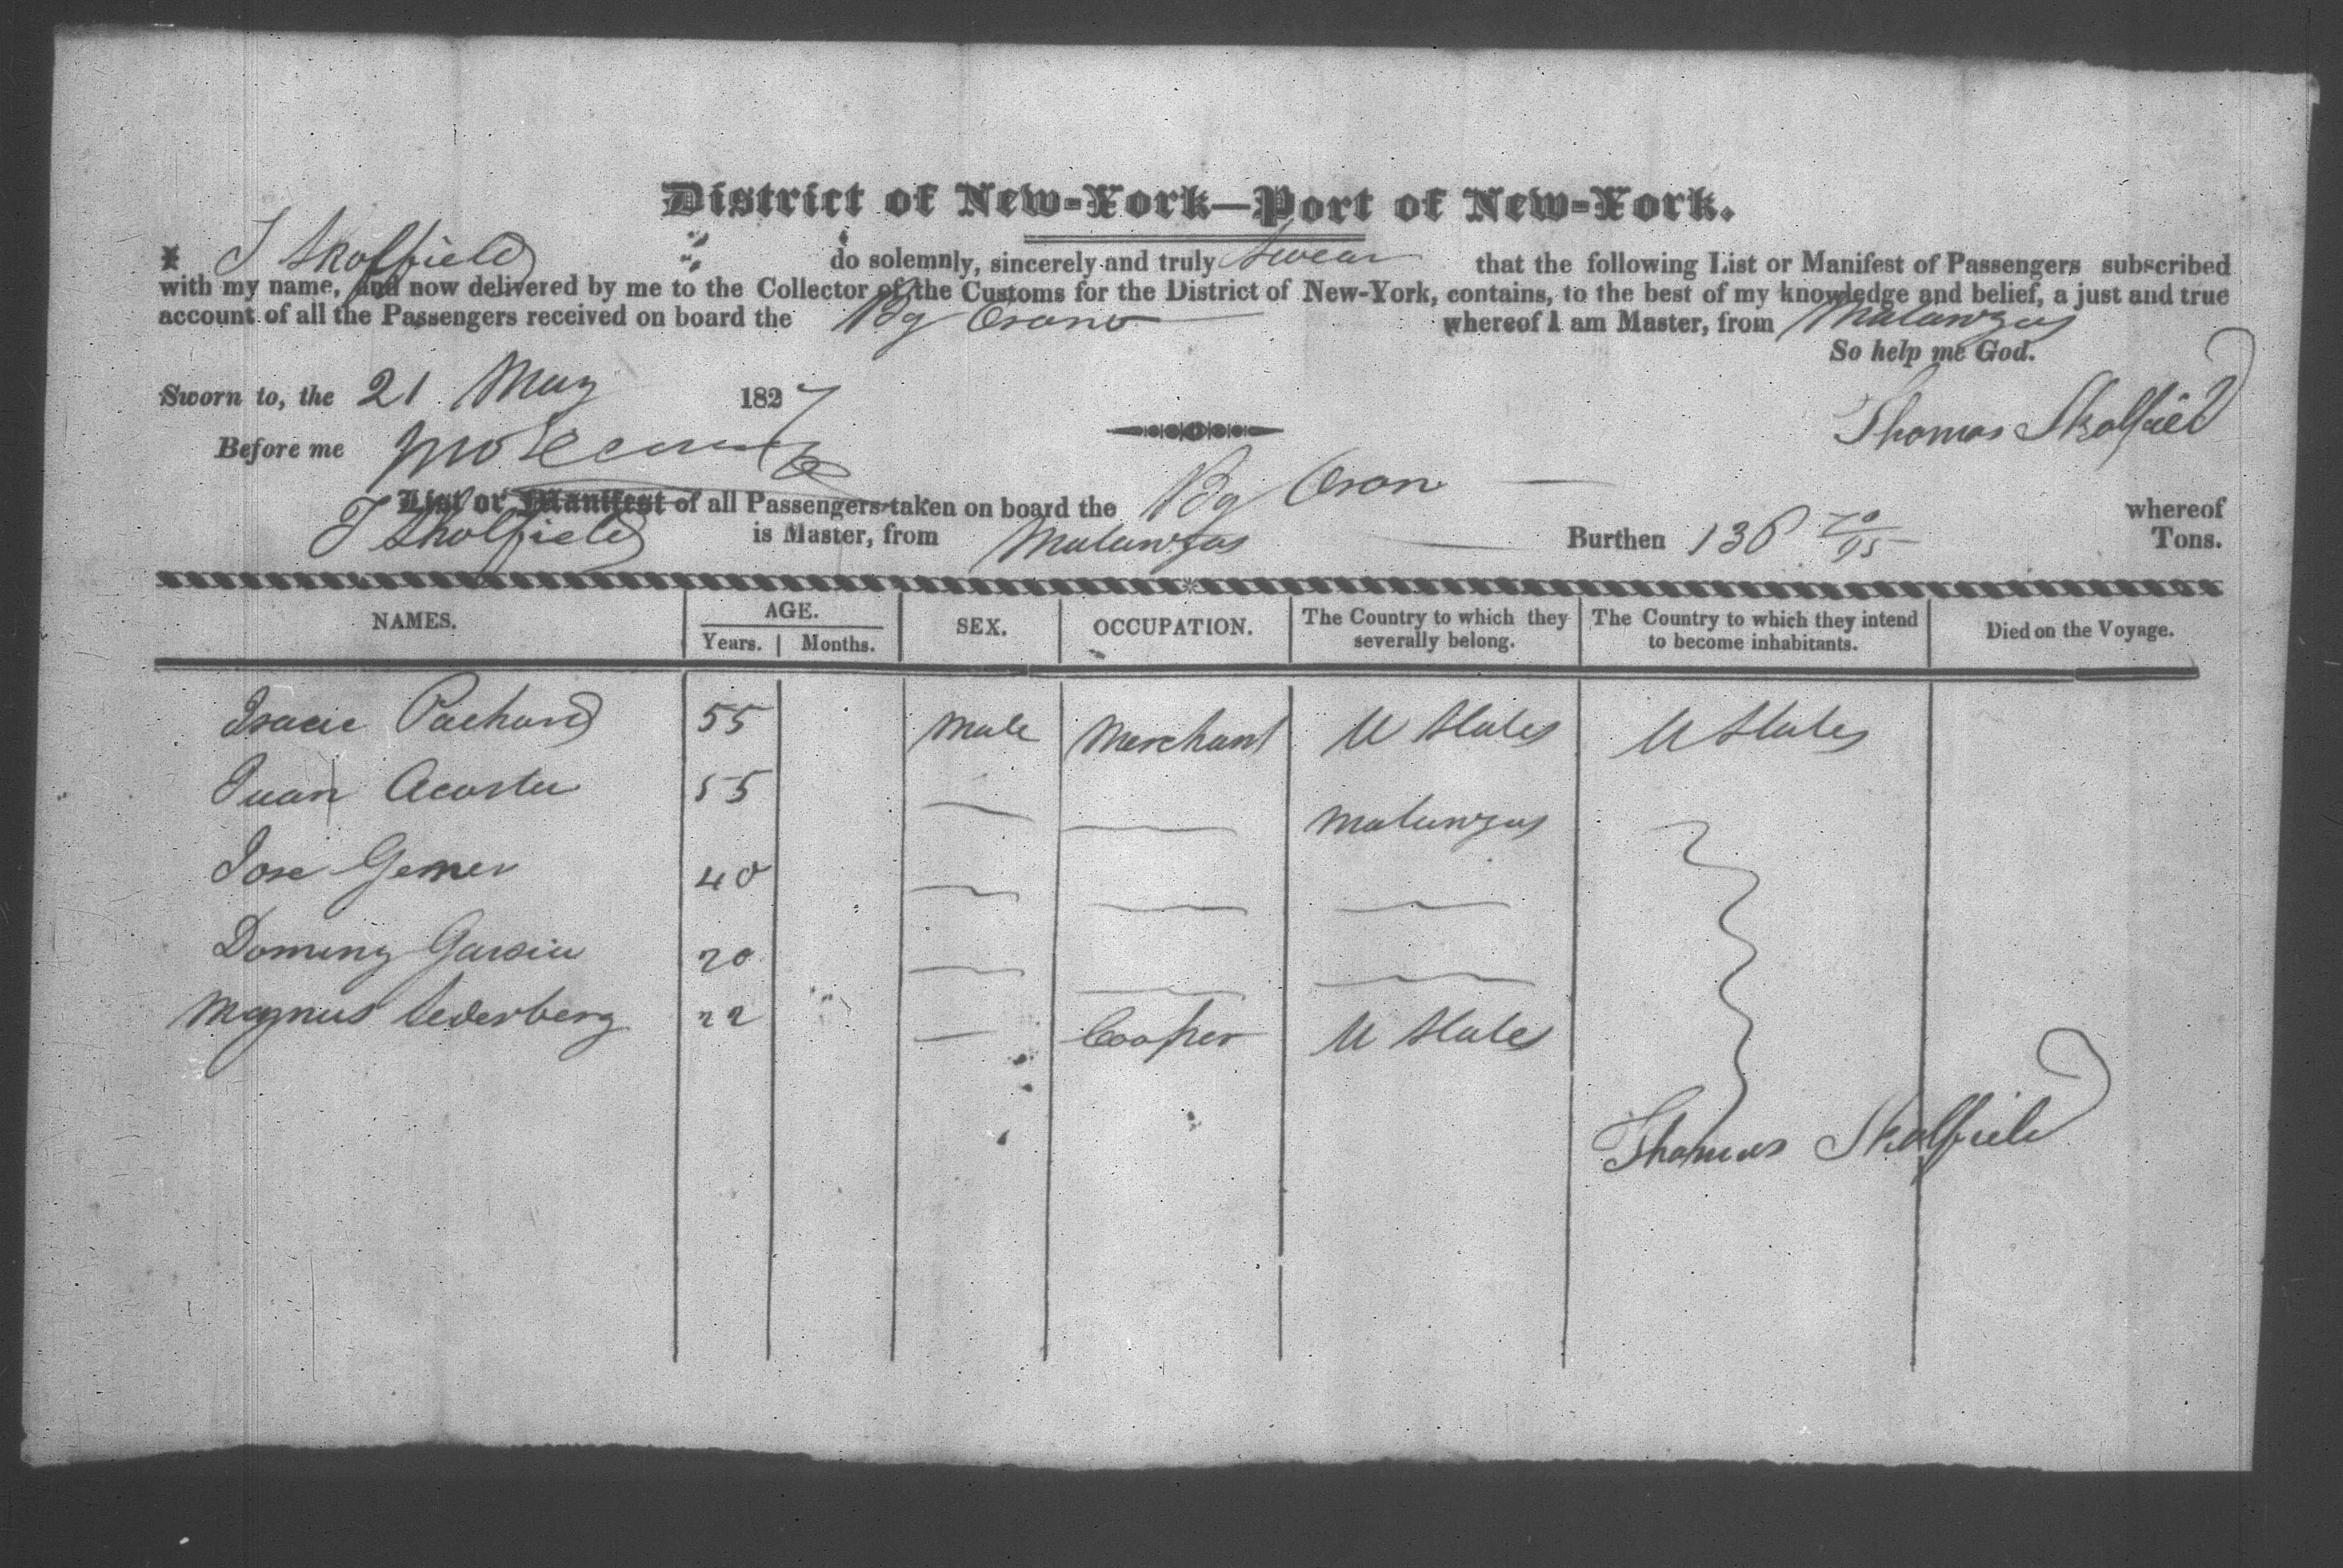 District of New-York—Port of New-York.
I T Skolfield do solemnly, sincerely and truly swear that the following List or Manifest of Passengers subscribed
with my name, and now delivered by me to the Collector of the Customs for the District of New-York, contains, to the best of my knowledge and belief, a just and true
account of all the Passengers received on board the Bg Orono whereof I am Master, from Matanzas
So help me God.
Sworn to, the 21 May 1827
Thomas Skolfield
Before me
List or Manifest of all Passengers taken on board the Bg Oron whereof
T Skolfield is Master, from Matanzas Burthen 136 70/95 Tons.
NAMES. AGE. Years. Months. SEX. OCCUPATION. The Country to which they severally belong. The Country to which they intend to become inhabitants. Died on the Voyage.
Isaac Packard 55 Male Merchant U States U States
Juan Acosta 55 — — Matanzas
Jose Gemer 40 — — —
Doming Garsia 20 — — —
Magnus Cederberg 22 — Cooper U States
Thomas Skolfield